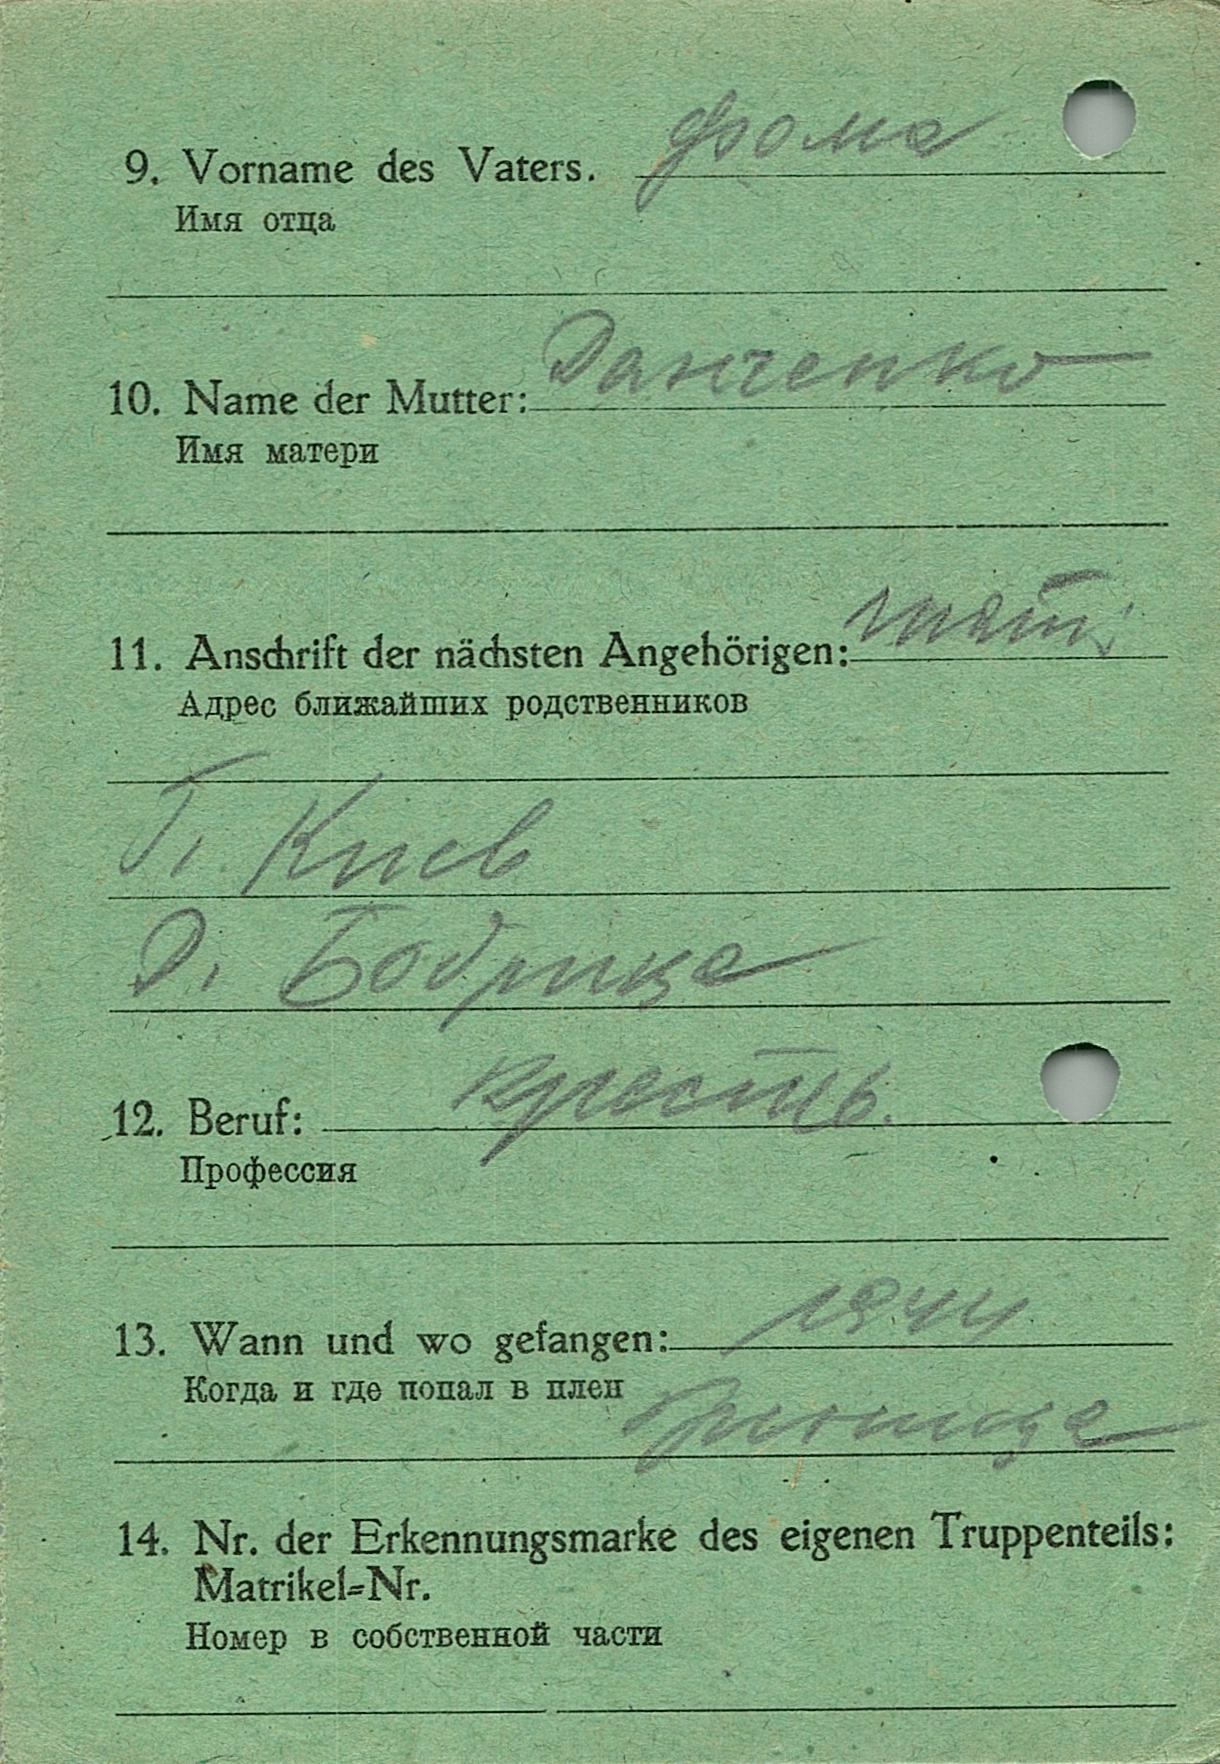 9. Vorname des Vaters. Фома
Имя отца
10. Name der Mutter: Данченко
Имя матери
11. Anschrift der nächsten Angehörigen: мать
Адрес ближайших родственников
Г. Киев
Д. Бодрица
12. Beruf: кресть.
Профессия
13. Wann und wo gefangen: 1944
Когда и где попал в плен
14. Nr. der Erkennungsmarke des eigenen Truppenteils:
Matrikel-Nr.
Номер в собственной части